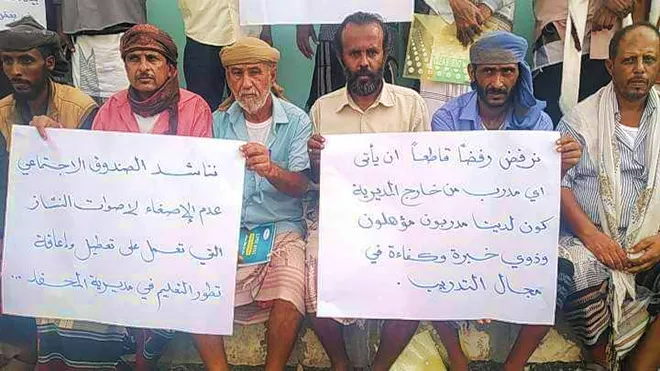 نرفض رفضًا قاطعاً ان يأتى
اي مدرب من خارج المديرية
كون لدينا مدربون مؤهلون
وذوي خبرة وكفاءة في
مجال التدريب.
نناشد الصندوق الاجتماعي
عدم الإصغاء لاصوات النشاز
التي تعمل على تعطيل وإعاقة
تطور التعليم في مديرية المحفد...